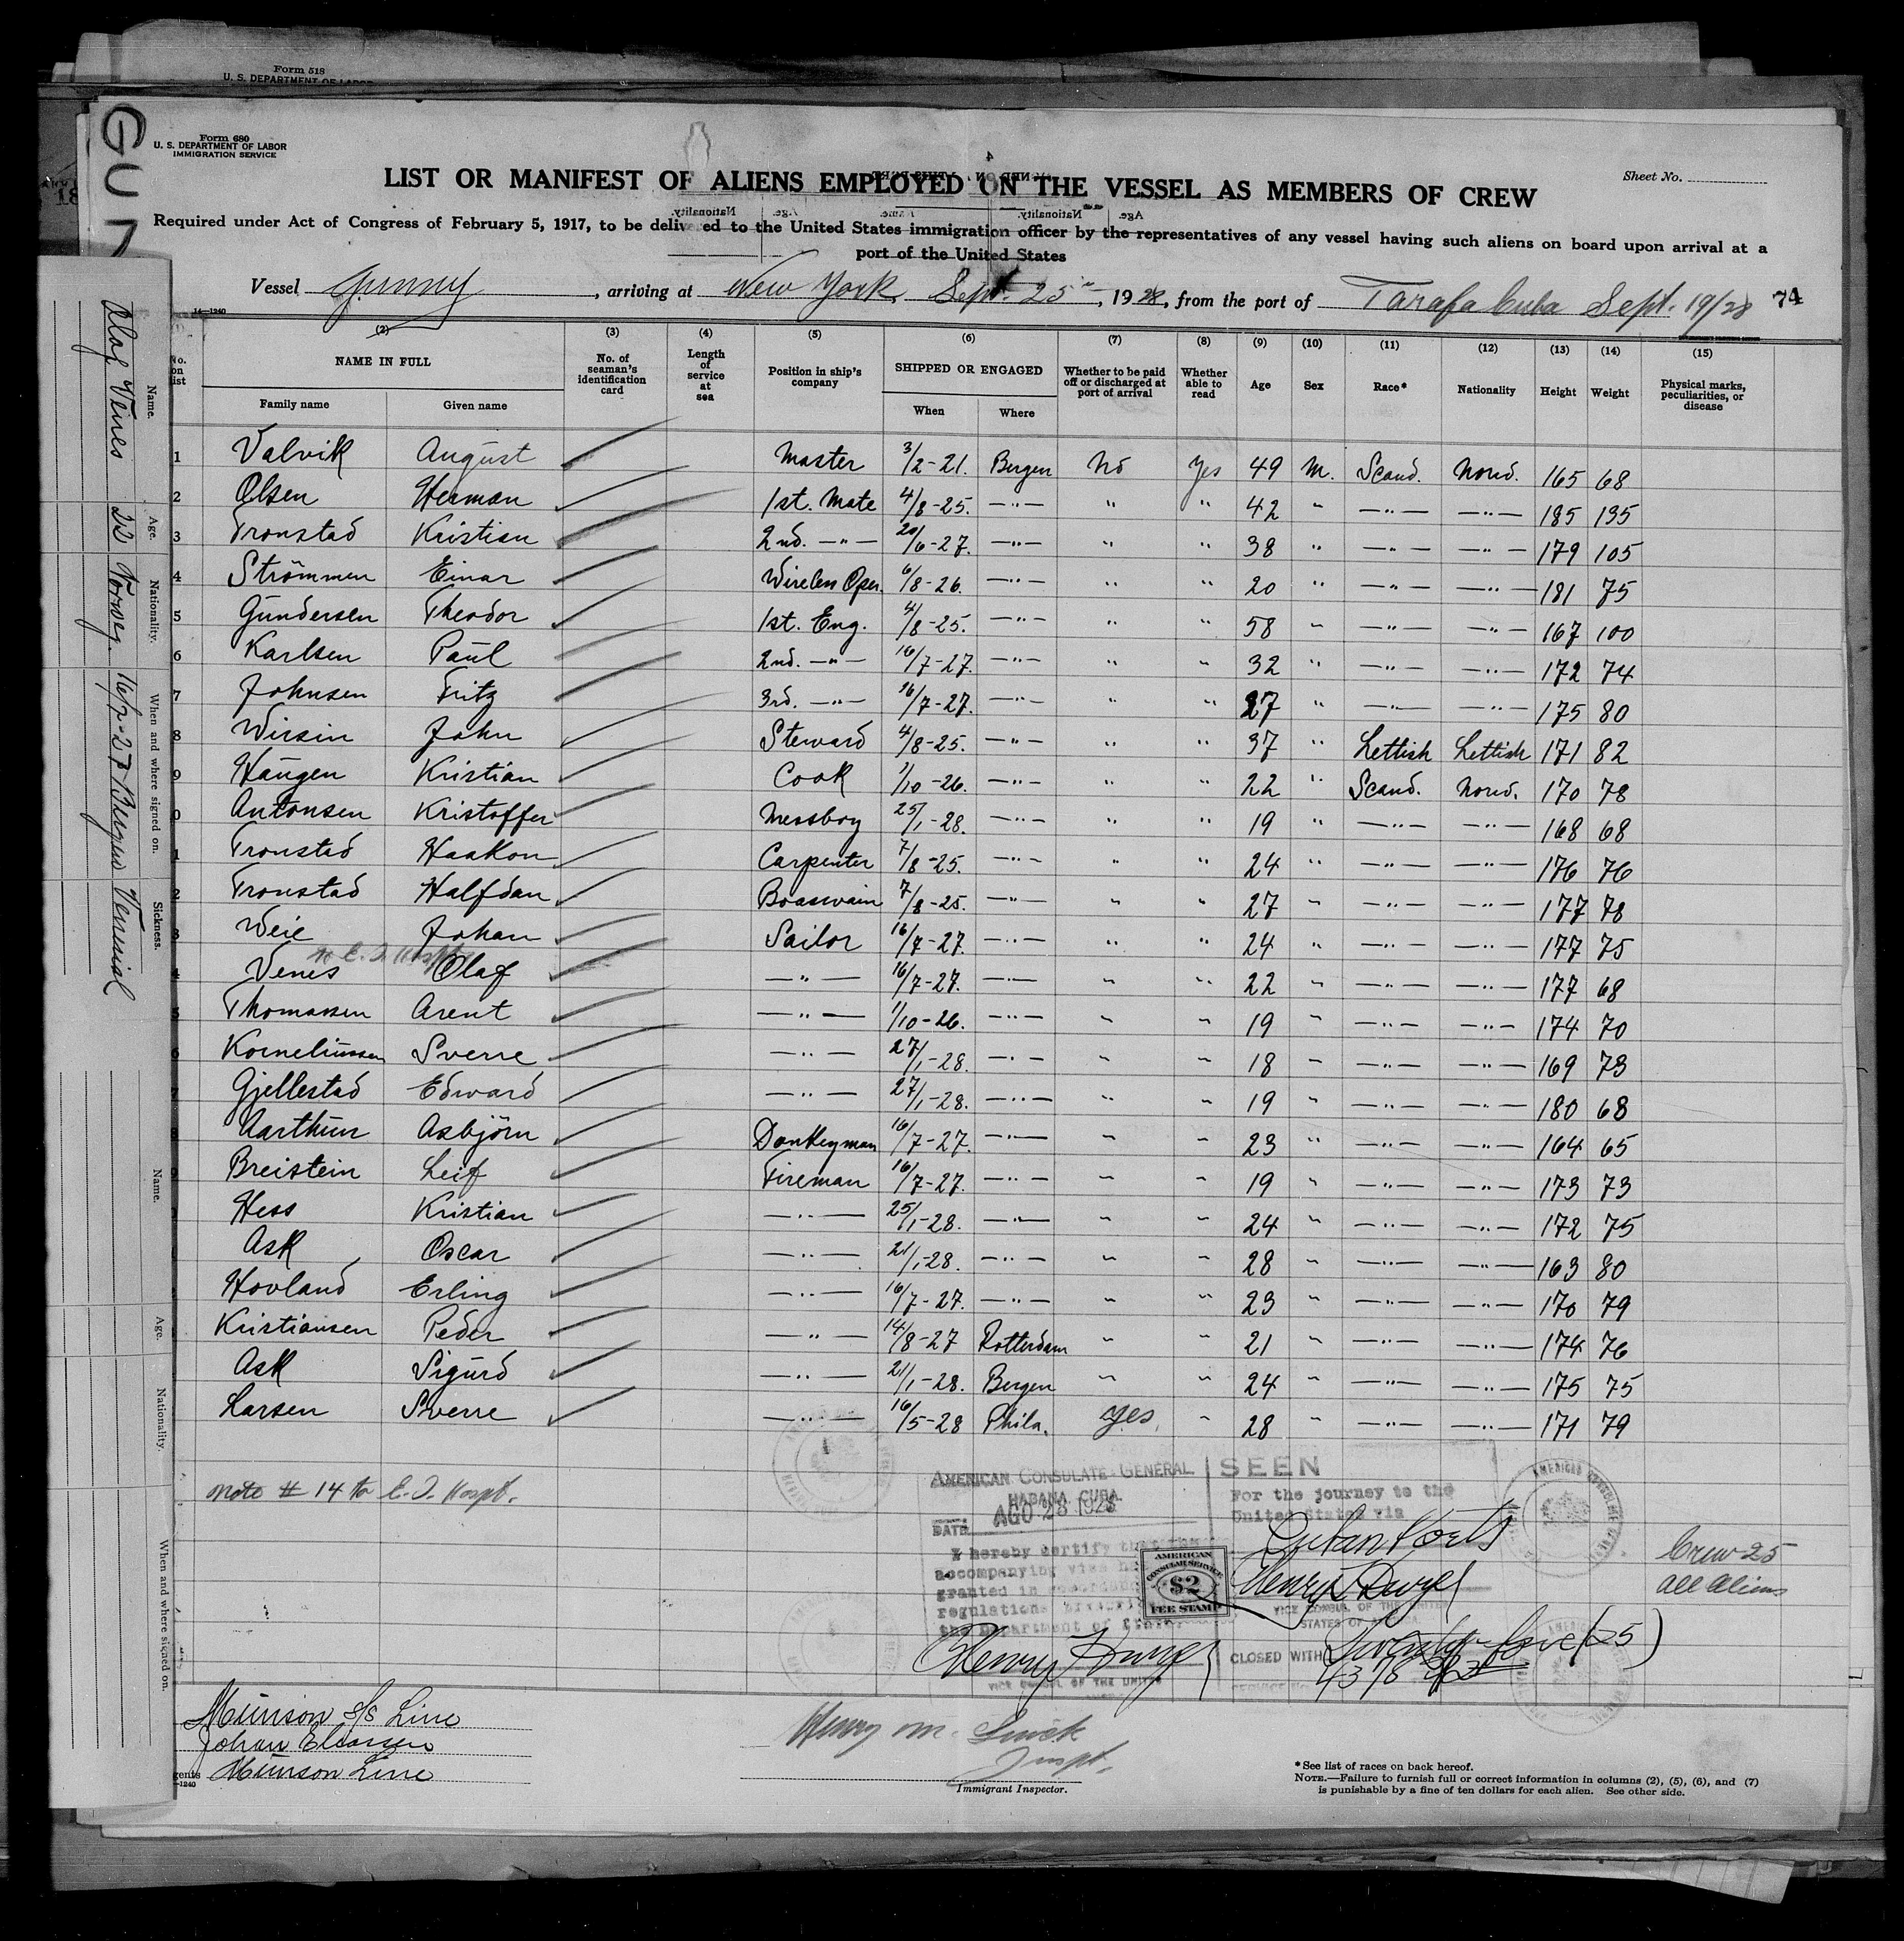 Form 518
U. S. DEPARTMENT OF LABOR
GUN
Form 680
U. S. DEPARTMENT OF LABOR
IMMIGRATION SERVICE
Sheet No.
LIST OR MANIFEST OF ALIENS EMPLOYED ON THE VESSEL AS MEMBERS OF CREW
Required under Act of Congress of February 5, 1917, to be delivered to the United States immigration officer by the representatives of any vessel having such aliens on board upon arrival at a
port of the United States
Vessel Gunny, arriving at New York Sept. 25th, 1928, from the port of Tarafa Cuba Sept. 19/28 74
14—1240
(2) (3) (4) (5) (6) (7) (8) (9) (10) (11) (12) (13) (14) (15)
No. on list NAME IN FULL No. of seaman's identification card Length of service at sea Position in ship's company SHIPPED OR ENGAGED Whether to be paid off or discharged at port of arrival Whether able to read Age Sex Race* Nationality Height Weight Physical marks, peculiarities, or disease
Family name Given name When Where
1 Valvik August Master 3/2-21. Bergen No Yes 49 M. Scand. Norw. 165 68
2 Olsen Herman 1st. Mate 4/8-25. —"— " " 42 " —"— —"— 185 135
3 Tronstad Kristian 2nd. —"— 20/6-27. —"— " " 38 " —"— —"— 179 105
4 Strömmen Einar Wireless Oper. 6/8-26. —"— " " 20 " —"— —"— 181 75
5 Gundersen Theodor 1st. Eng. 4/8-25. —"— " " 58 " —"— —"— 167 100
6 Karlsen Paul 2nd. —"— 16/7-27. —"— " " 32 " —"— —"— 172 74
7 Johnsen Fritz 3rd. —"— 16/7-27. —"— " " 27 " —"— —"— 175 80
8 Wirsin John Steward 4/8-25. —"— " " 37 " Lettish Lettish 171 82
9 Haugen Kristian Cook 1/10-26. —"— " " 22 " Scand. Norw. 170 78
0 Antonsen Kristoffer Messboy 25/1-28. —"— " " 19 " —"— —"— 168 68
1 Tronstad Haakon Carpenter 7/8-25. —"— " " 24 " —"— —"— 176 76
2 Tronstad Halfdan Boaswain 7/8-25. —"— " " 27 " —"— —"— 177 78
3 Weie Johan Sailor 16/7-27. —"— " " 24 " —"— —"— 177 75
E. I. Hospt.
4 Venes Olaf —"— 16/7-27. —"— " " 22 " —"— —"— 177 68
5 Thomassen Arent —"— 1/10-26. —"— " " 19 " —"— —"— 174 70
6 Korneliussen Sverre —"— 27/1-28. —"— " " 18 " —"— —"— 169 73
7 Gjellestad Edward —"— 27/1-28. —"— " " 19 " —"— —"— 180 68
8 Aarthun Asbjörn Donkeyman 16/7-27. —"— " " 23 " —"— —"— 164 65
9 Breistein Leif Fireman 16/7-27. —"— " " 19 " —"— —"— 173 73
Hess Kristian —"— 25/1-28. —"— " " 24 " —"— —"— 172 75
Ask Oscar —"— 21/1-28. —"— " " 28 " —"— —"— 163 80
Hovland Erling —"— 16/7-27. —"— " " 23 " —"— —"— 170 79
Kristiansen Peder —"— 14/8-27 Rotterdam " " 21 " —"— —"— 174 76
Ask Sigurd —"— 21/1-28. Bergen " " 24 " —"— —"— 175 75
Larsen Sverre —"— 16/5-28 Phila. Yes " 28 " —"— —"— 171 79
note # 14 to E. I. Hospt.
AMERICAN CONSULATE-GENERAL
HABANA, CUBA.
DATE AGO 28 1928
I hereby certify that the
accompanying visa has
granted in accordance
regulations
the Department of
Henry
VICE CONSUL OF THE UNITED
SEEN
For the journey to the
United States via
Cuban Ports
Henry
VICE CONSUL OF THE UNITED
STATES OF AMERICA
CLOSED WITH Twenty-five (25)
AMERICAN
CONSULAR SERVICE
$2
FEE STAMP
Crew 25
all aliens
Munson S/S Line
Munson Line
Henry M.
Inspt.
Immigrant Inspector.
*See list of races on back hereof.
NOTE.—Failure to furnish full or correct information in columns (2), (5), (6), and (7)
is punishable by a fine of ten dollars for each alien. See other side.
Name. Age. Nationality. When and where signed on. Sickness.
Olaf Venes 22 Norweg. 16/7-27 Bergen Venerial
Name. Age. Nationality. When and where signed on.